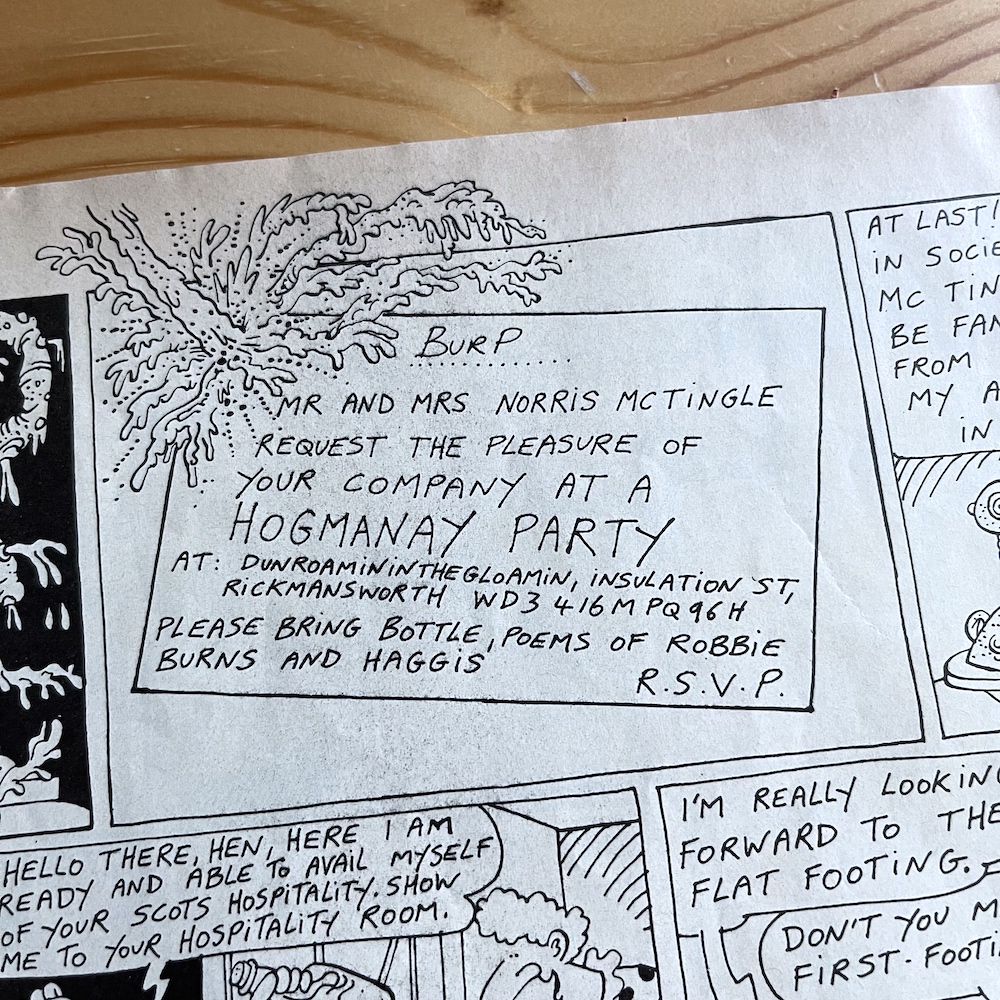 BURP
MR AND MRS NORRIS MCTINGLE
REQUEST THE PLEASURE OF
YOUR COMPANY AT A
HOGMANAY PARTY
AT: DUNROAMININTHEGLOAMIN, INSULATION ST,
RICKMANSWORTH WD3 416M PQ96H
PLEASE BRING BOTTLE, POEMS OF ROBBIE
BURNS AND HAGGIS
R.S.V.P.
AT LAST!
IN
MC
BE
FROM
MY
IN
HELLO THERE, HEN, HERE I AM
READY AND ABLE TO AVAIL MYSELF
OF YOUR SCOTS HOSPITALITY. SHOW
ME TO YOUR HOSPITALITY ROOM.
I'M REALLY LOOKING
FORWARD TO THE
FLAT FOOTING.
DON'T YOU
FIRST-